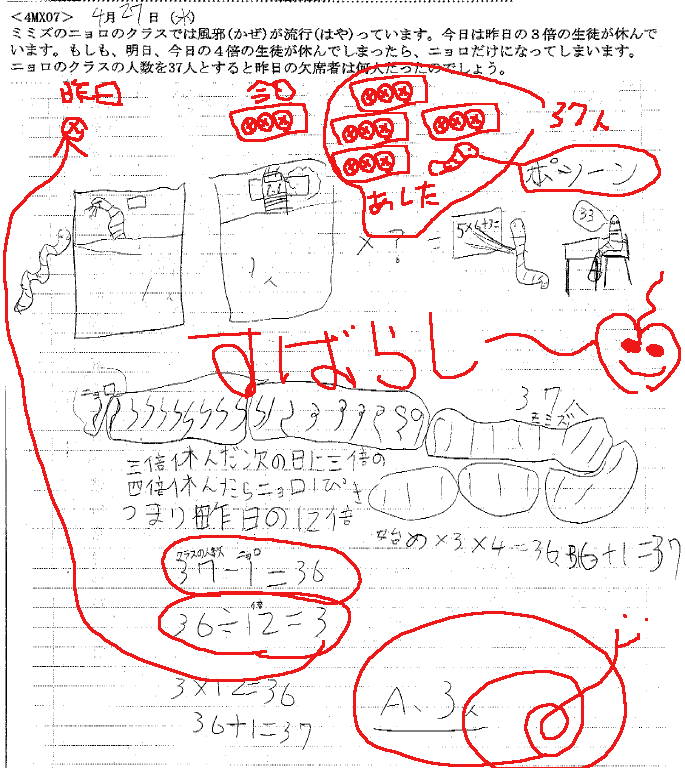 <4MX07> 4月27日(水)
ミミズのニョロのクラスでは風邪(かぜ)が流行(はや)っています。今日は昨日の3倍の生徒が休んで
います。もしも、明日、今日の4倍の生徒が休んでしまったら、ニョロだけになってしまいます。
ニョロのクラスの人数を37人とすると昨日の欠席者は何人だったのでしょう。
昨日
今日
37人
あした
ポツーン
5×6+3=
33
×?=
すばらしー
ニョロ
37
ミミズ
三倍休んだ次の日に三倍の
四倍休んだらニョロ1ぴき
つまり昨日の12倍
始め×3×4=36 36+1=37
クラスの人数 ニョロ
37-1=36
倍
36÷12=3
3×12=36
36+1=37
A、3人